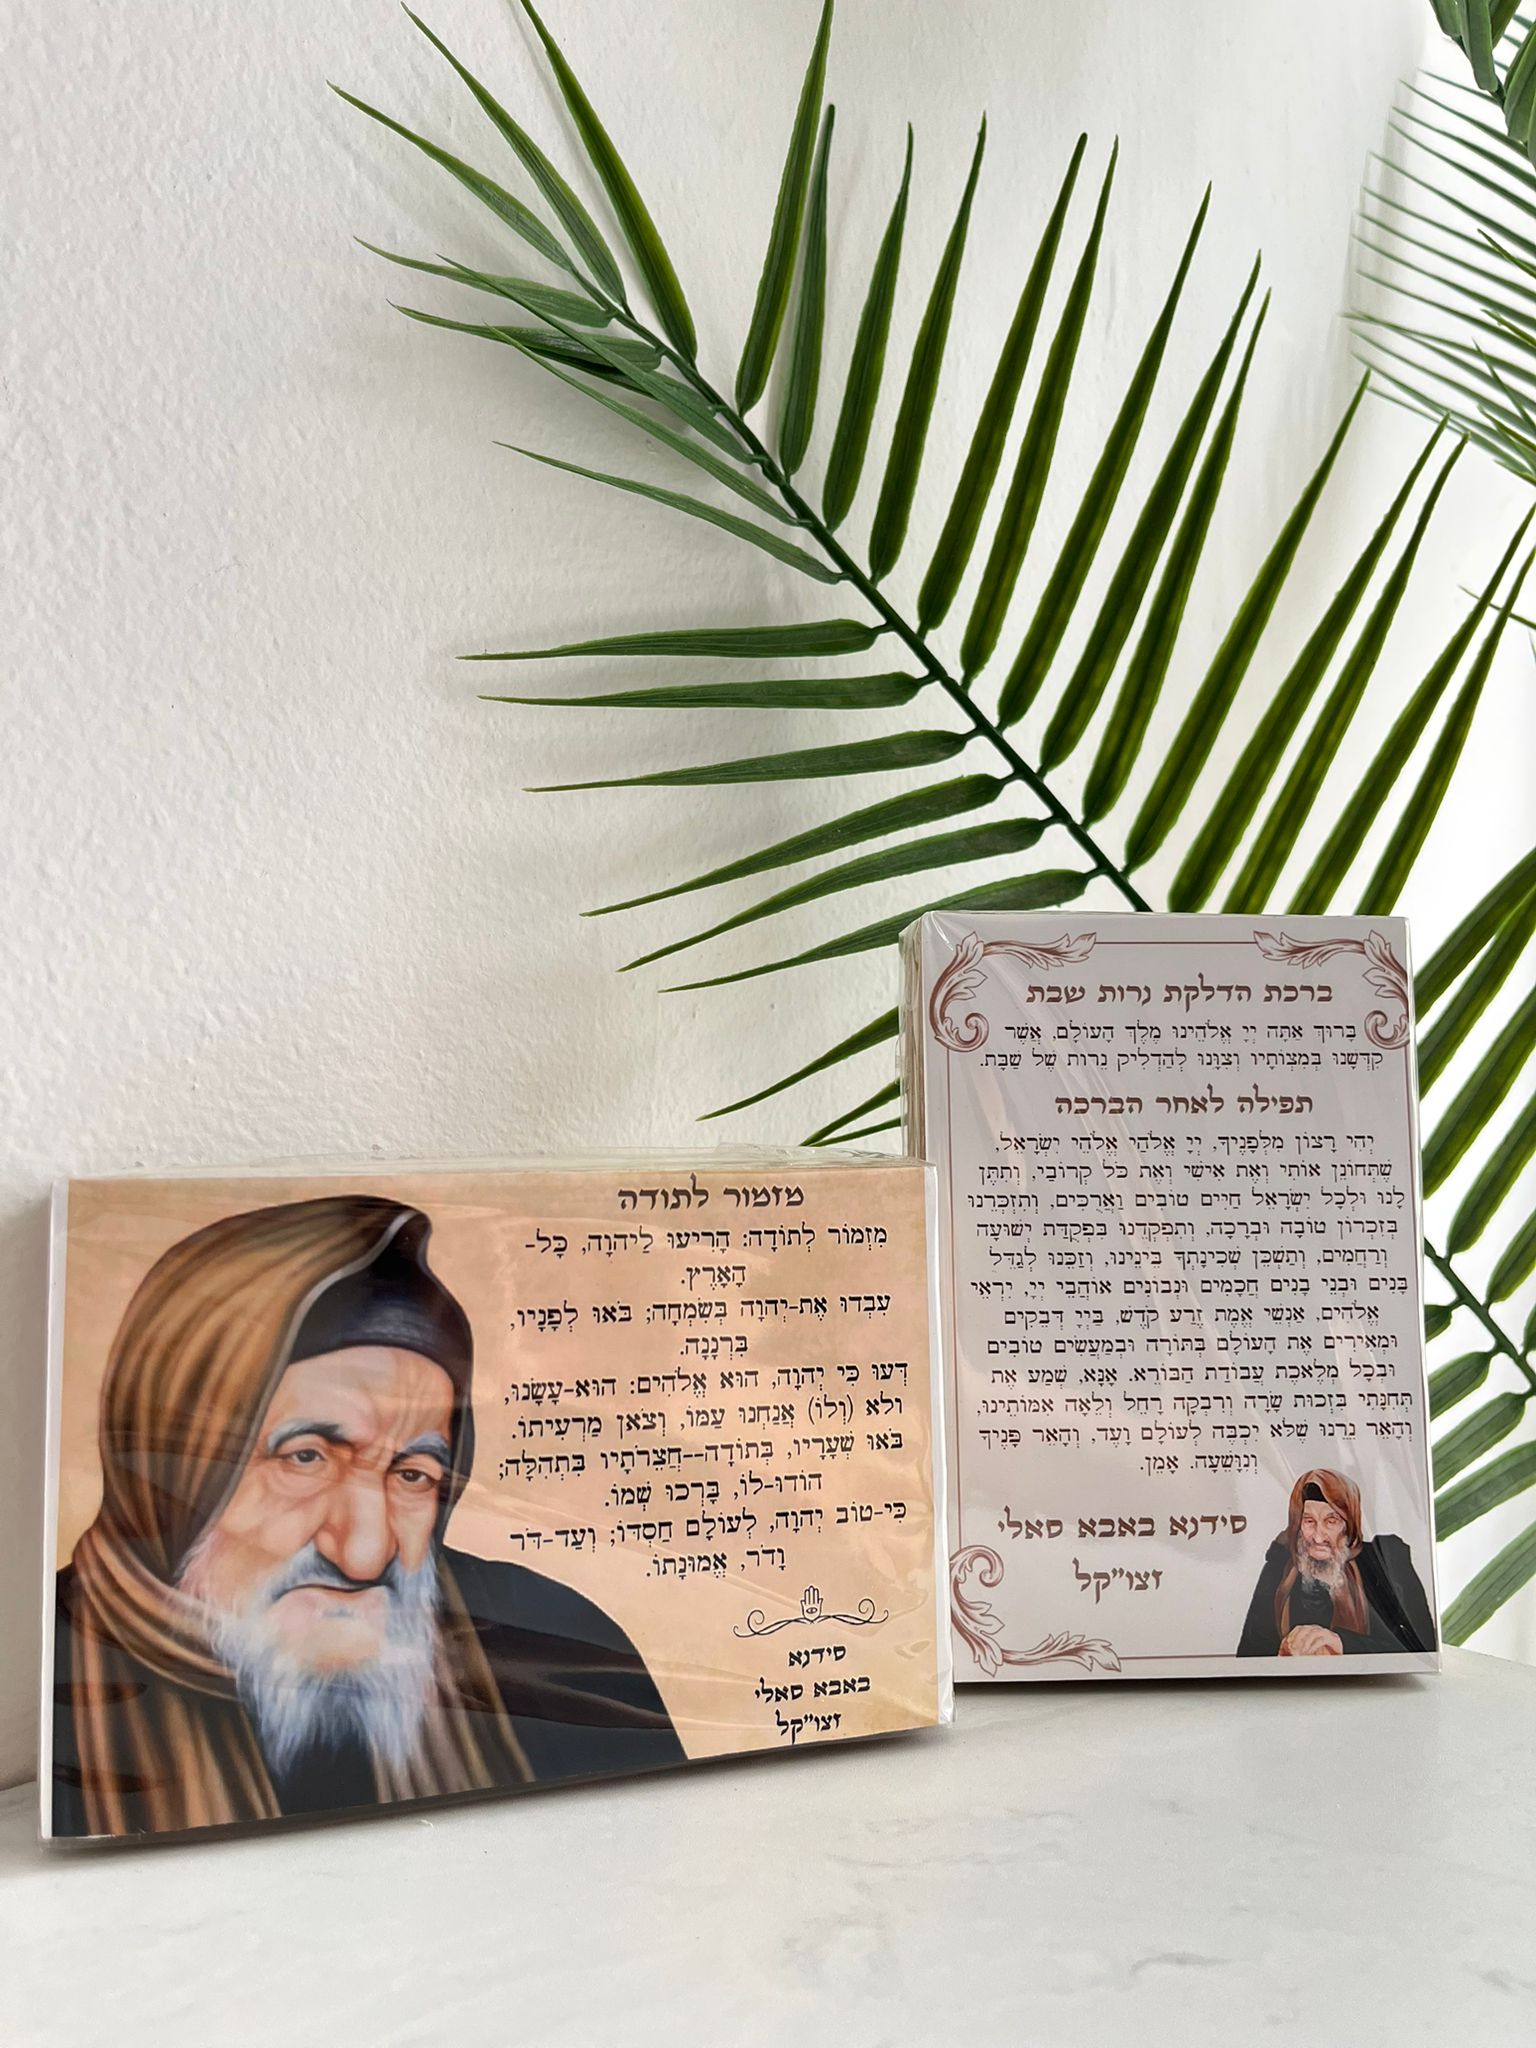 מזמור לתודה
מִזְמוֹר לְתוֹדָה: הָרִיעוּ לַיהוָה, כָּל-
הָאָרֶץ.
עִבְדוּ אֶת-יְהוָה בְּשִׂמְחָה; בֹּאוּ לְפָנָיו,
בִּרְנָנָה.
דְּעוּ כִּי יְהוָה, הוּא אֱלֹהִים: הוּא-עָשָׂנוּ,
ולא (וְלוֹ) אֲנַחְנוּ עַמּוֹ, וְצֹאן מַרְעִיתוֹ.
בֹּאוּ שְׁעָרָיו, בְּתוֹדָה--חֲצֵרֹתָיו בִּתְהִלָּה;
הוֹדוּ-לוֹ, בָּרְכוּ שְׁמוֹ.
כִּי-טוֹב יְהוָה, לְעוֹלָם חַסְדּוֹ; וְעַד-דֹּר
וָדֹר, אֱמוּנָתוֹ.
סידנא
באבא סאלי
זצו"קל
ברכת הדלקת נרות שבת
בָּרוּךְ אַתָּה יְיָ אֱלֹהֵינוּ מֶלֶךְ הָעוֹלָם, אֲשֶׁר
קִדְּשָׁנוּ בְּמִצְוֹתָיו וְצִוָּנוּ לְהַדְלִיק נֵרוֹת שֶׁל שַׁבָּת.
תפילה לאחר הברכה
יְהִי רָצוֹן מִלְּפָנֶיךָ, יְיָ אֱלֹהַי אֱלֹהֵי יִשְׂרָאֵל,
שֶׁתְּחוֹנֵן אוֹתִי וְאֶת אִישִׁי וְאֶת כֹּל קְרוֹבַי, וְתִתֶּן
לָנוּ וּלְכָל יִשְׂרָאֵל חַיִּים טוֹבִים וַאֲרֻכִּים, וְתִזְכְּרֵנוּ
בְּזִכְרוֹן טוֹבָה וּבְרָכָה, וְתִפְקְדֵנוּ בִּפְקֻדַּת יְשׁוּעָה
וְרַחֲמִים, וְתַשְׁכֵּן שְׁכִינָתְךָ בֵּינֵינוּ, וְזַכֵּנוּ לְגַדֵּל
בָּנִים וּבְנֵי בָנִים חֲכָמִים וּנְבוֹנִים אוֹהֲבֵי יְיָ, יִרְאֵי
אֱלֹהִים, אַנְשֵׁי אֱמֶת זֶרַע קֹדֶשׁ, בַּיְיָ דְּבֵקִים
וּמְאִירִים אֶת הָעוֹלָם בְּתוֹרָה וּבְמַעֲשִׂים טוֹבִים
וּבְכָל מְלֶאכֶת עֲבוֹדַת הַבּוֹרֵא. אָנָּא, שְׁמַע אֶת
תְּחִנָּתִי בִּזְכוּת שָׂרָה וְרִבְקָה רָחֵל וְלֵאָה אִמּוֹתֵינוּ,
וְהָאֵר נֵרֵנוּ שֶׁלֹּא יִכְבֶּה לְעוֹלָם וָעֶד, וְהָאֵר פָּנֶיךָ
וְנִוָּשֵׁעָה. אָמֵן.
סידנא באבא סאלי
זצו"קל